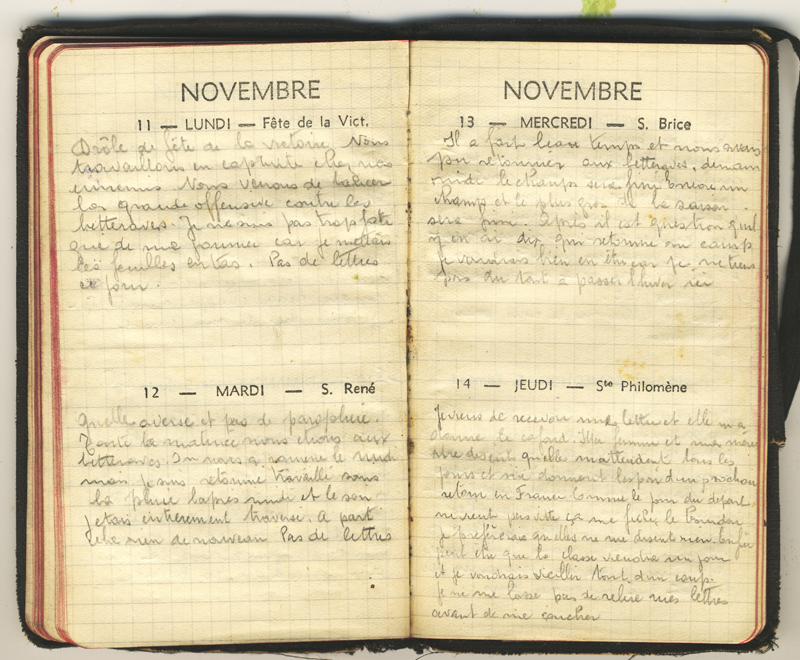 NOVEMBRE
11 — LUNDI — Fête de la Vict.
Drôle de fête de la victoire. Nous
travaillons en captivité chez nos
ennemis Nous venons de lancer
la grande offensive contre les
betteraves. Je ne suis pas trop fatigué
de ma journée car je mettais
les feuilles en tas. Pas de lettres
ce jour.
12 — MARDI — S. René
Quelle averse et pas de parapluie.
Toute la matinée nous étions aux
betteraves. On nous a ramené le midi
mais je suis retourné travaillé sous
la pluie l'après midi et le soir
j'étais entièrement traversé. A part
cela rien de nouveau Pas de lettres
NOVEMBRE
13 — MERCREDI — S. Brice
Il a fait beau temps et nous avons
pu retourner aux betteraves, demain
le champs sera fini encore un
champ et le plus gros de la saison
sera fini. Après il est question qu'il
y en ai dix qui retourne au camp
je voudrais bien en être car je ne tiens
pas du tout a passer l'hiver ici
14 — JEUDI — Ste Philomène
Je viens de recevoir une lettre et elle m'a
donné le cafard. Ma femme et ma mère
disent qu'elles m'attendent tous les
jours et
retour en France comme le jour du départ
ne vient pas vite ça me fiche le bourdon
je préférerais qu'elles ne me disent rien. Enfin
peut être que la classe viendra un jour
et je voudrais vieillir tout d'un coup.
Je ne me lasse pas de relire mes lettres
avant de me coucher